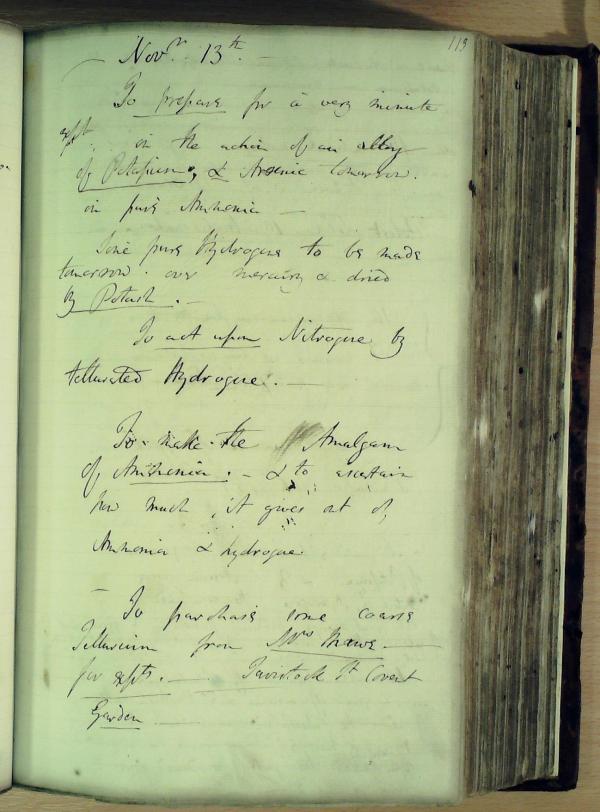 113
Novr. 13th. —
To prepare for a very minute
expt. on the action of an alloy
of Potassium, & Arsenic tomorrow.
in pure Ammonia —
Some pure Hydrogene to be made
tomorrow. over mercury & dried
by Potash. —
To act upon Nitrogene by
tellurated Hydrogene. —
To make the Amalgam
of Ammonia. — & to ascertain
how much it gives out of
Ammonia & hydrogene
— To purchase some coarse
Tellurium from Mrs Mawe —
for expts. — Tavistock St Covent
Garden —